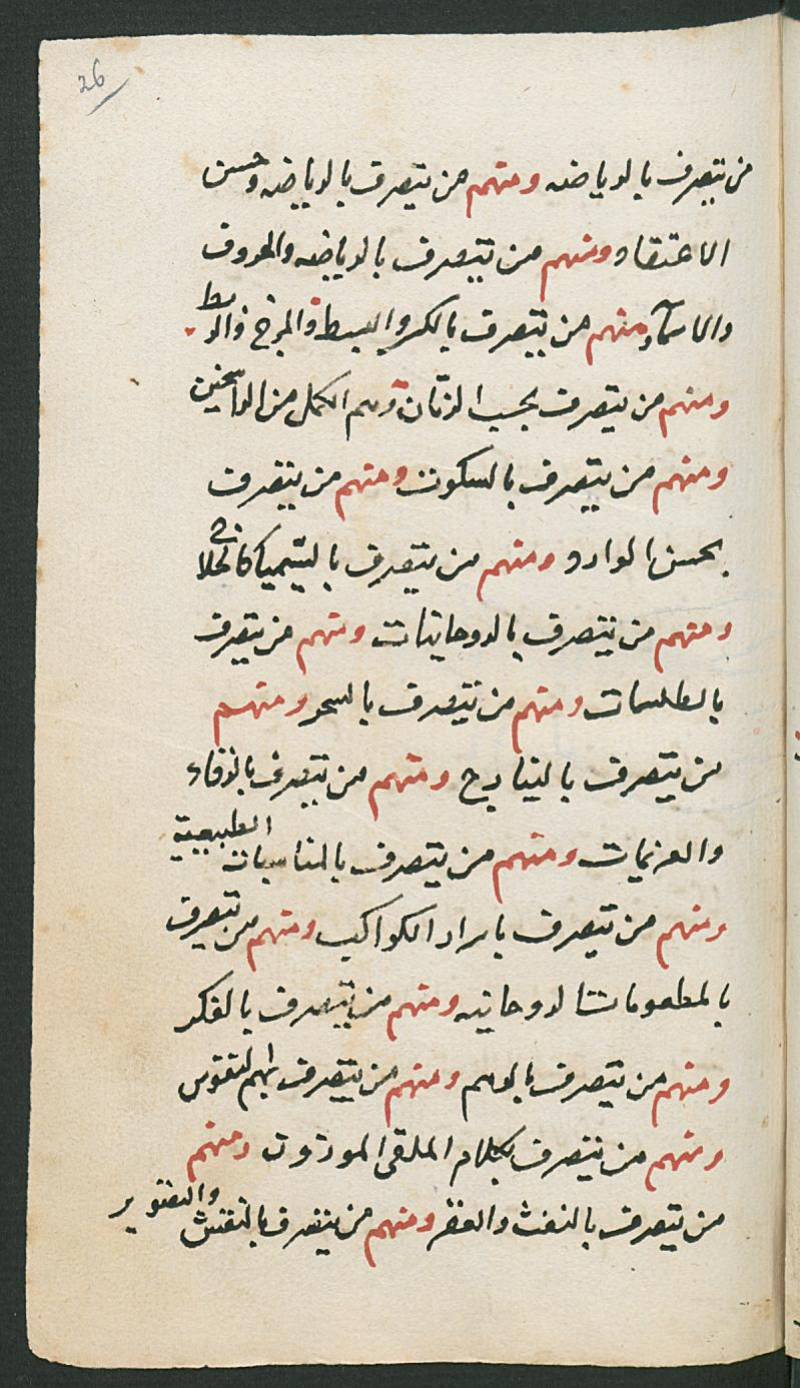 26
من يتصرف بالرياضه ومنهم من يتصرف بالرياضه وحسن
الاعتقاد ومنهم من يتصرف بالرياضه والحروف
والاسمآء ومنهم من يتصرف بالكسر والبسط والمزج والربط
ومنهم من يتصرف بحسب الزمان وهم الكمل من الراسخين
ومنهم من يتصرف بالسكون ومنهم من يتصرف
بحسن الوارد ومنهم من يتصرف بالسّيميا كالحلاج
ومنهم من يتصرف بالروحانيات ومنهم من يتصرف
بالطلسمات ومنهم من يتصرف بالسحر ومنهم
من يتصرف بالنيارنج ومنهم من يتصرف بالرقاء
والعزيمات ومنهم من يتصرف بالمناسبات الطبيعية
ومنهم من يتصرف باسرار الكواكب ومنهم من يتصرف
بالمطعومات الروحانيه ومنهم من يتصرف بالفكر
ومنهم من يتصرف بالوهم ومنهم من يتصرف بهمم النفوس
ومنهم من يتصرف بكلام الملقى الموزون ومنهم
من يتصرف بالنفث والعقد ومنهم من يتصرف بالنقش والتصوير